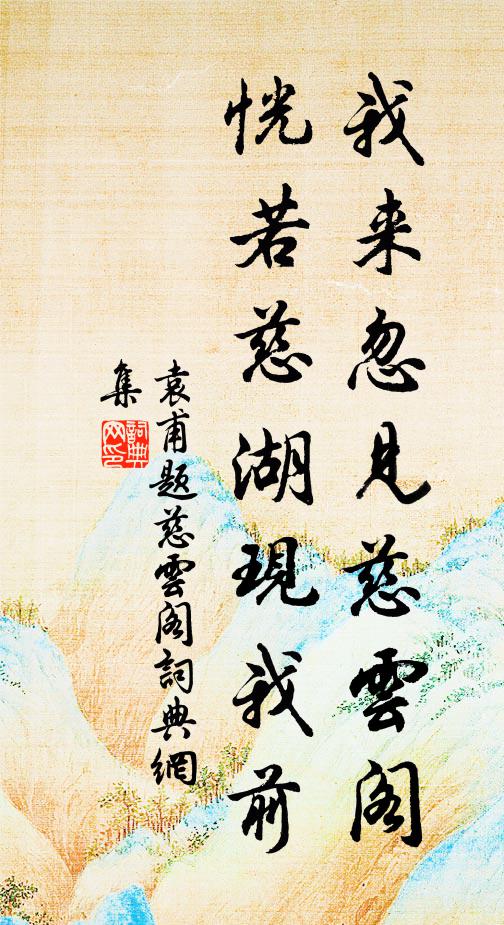 我来忽見慈雲阁
恍若慈湖現我前
袁甫題慈雲阁詞典網
集
詞典
网印